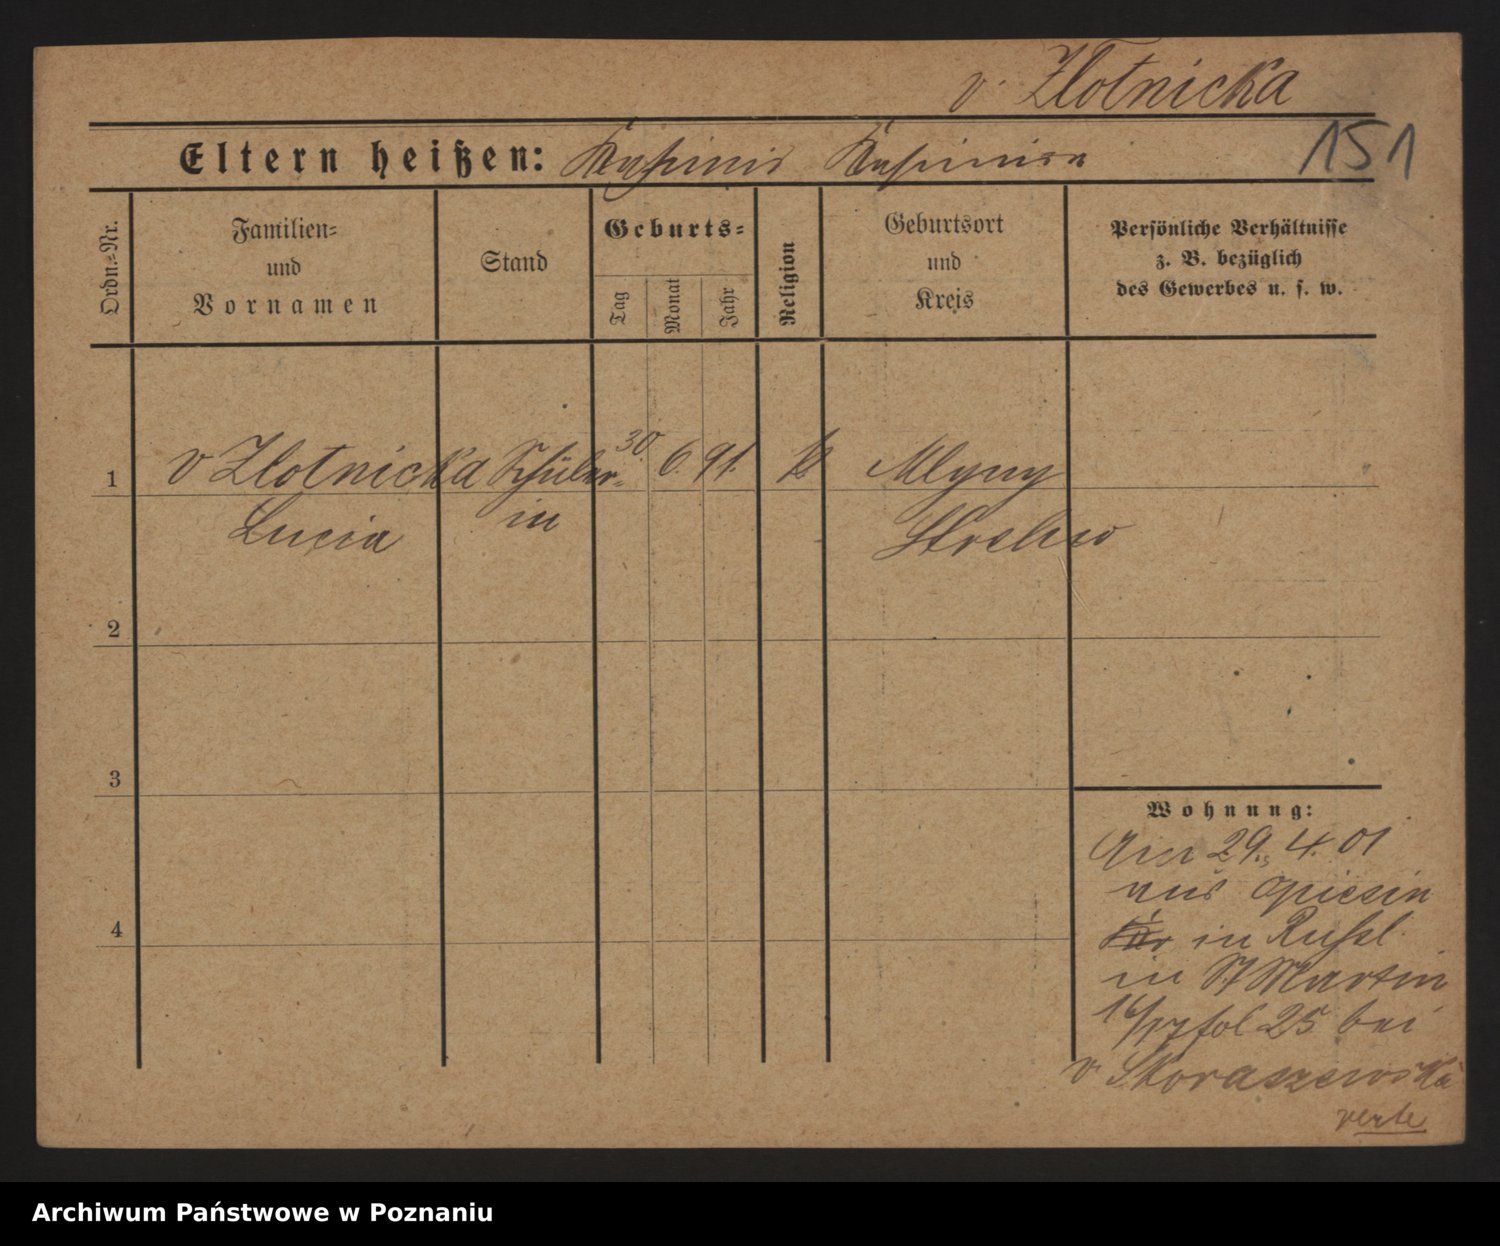 v. Zlotnicka
151
Eltern heißen: Kasimir Kasimira
Ordn.-Nr.
Familien-
und
Vornamen
Stand
Geburts-
Tag
Monat
Jahr
Religion
Geburtsort
und
Kreis
Persönliche Verhältnisse
z. B. bezüglich
des Gewerbes u. s. w.
1 v Zlotnicka Schüler- 30. 6. 91. k Mlyny
Lucia in Strelno
2
3
4
Wohnung:
Am 29. 4. 01
aus
in Russl.
in St Martin
16/17 fol 25 bei
v. Skoraszewska
verte
Archiwum Państwowe w Poznaniu